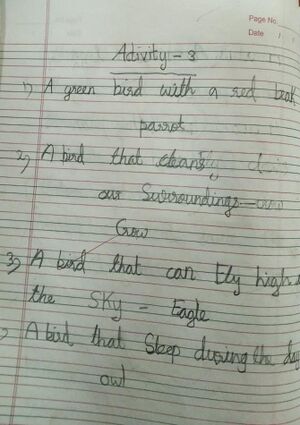 Page No.
Date
Activity - 3
1) A green bird with a red beak
parrot
2) A bird that cleans
our Surroundings - crow
Crow
3) A bird that can fly high
the SKy - Eagle
A bird that Sleep during the day
owl